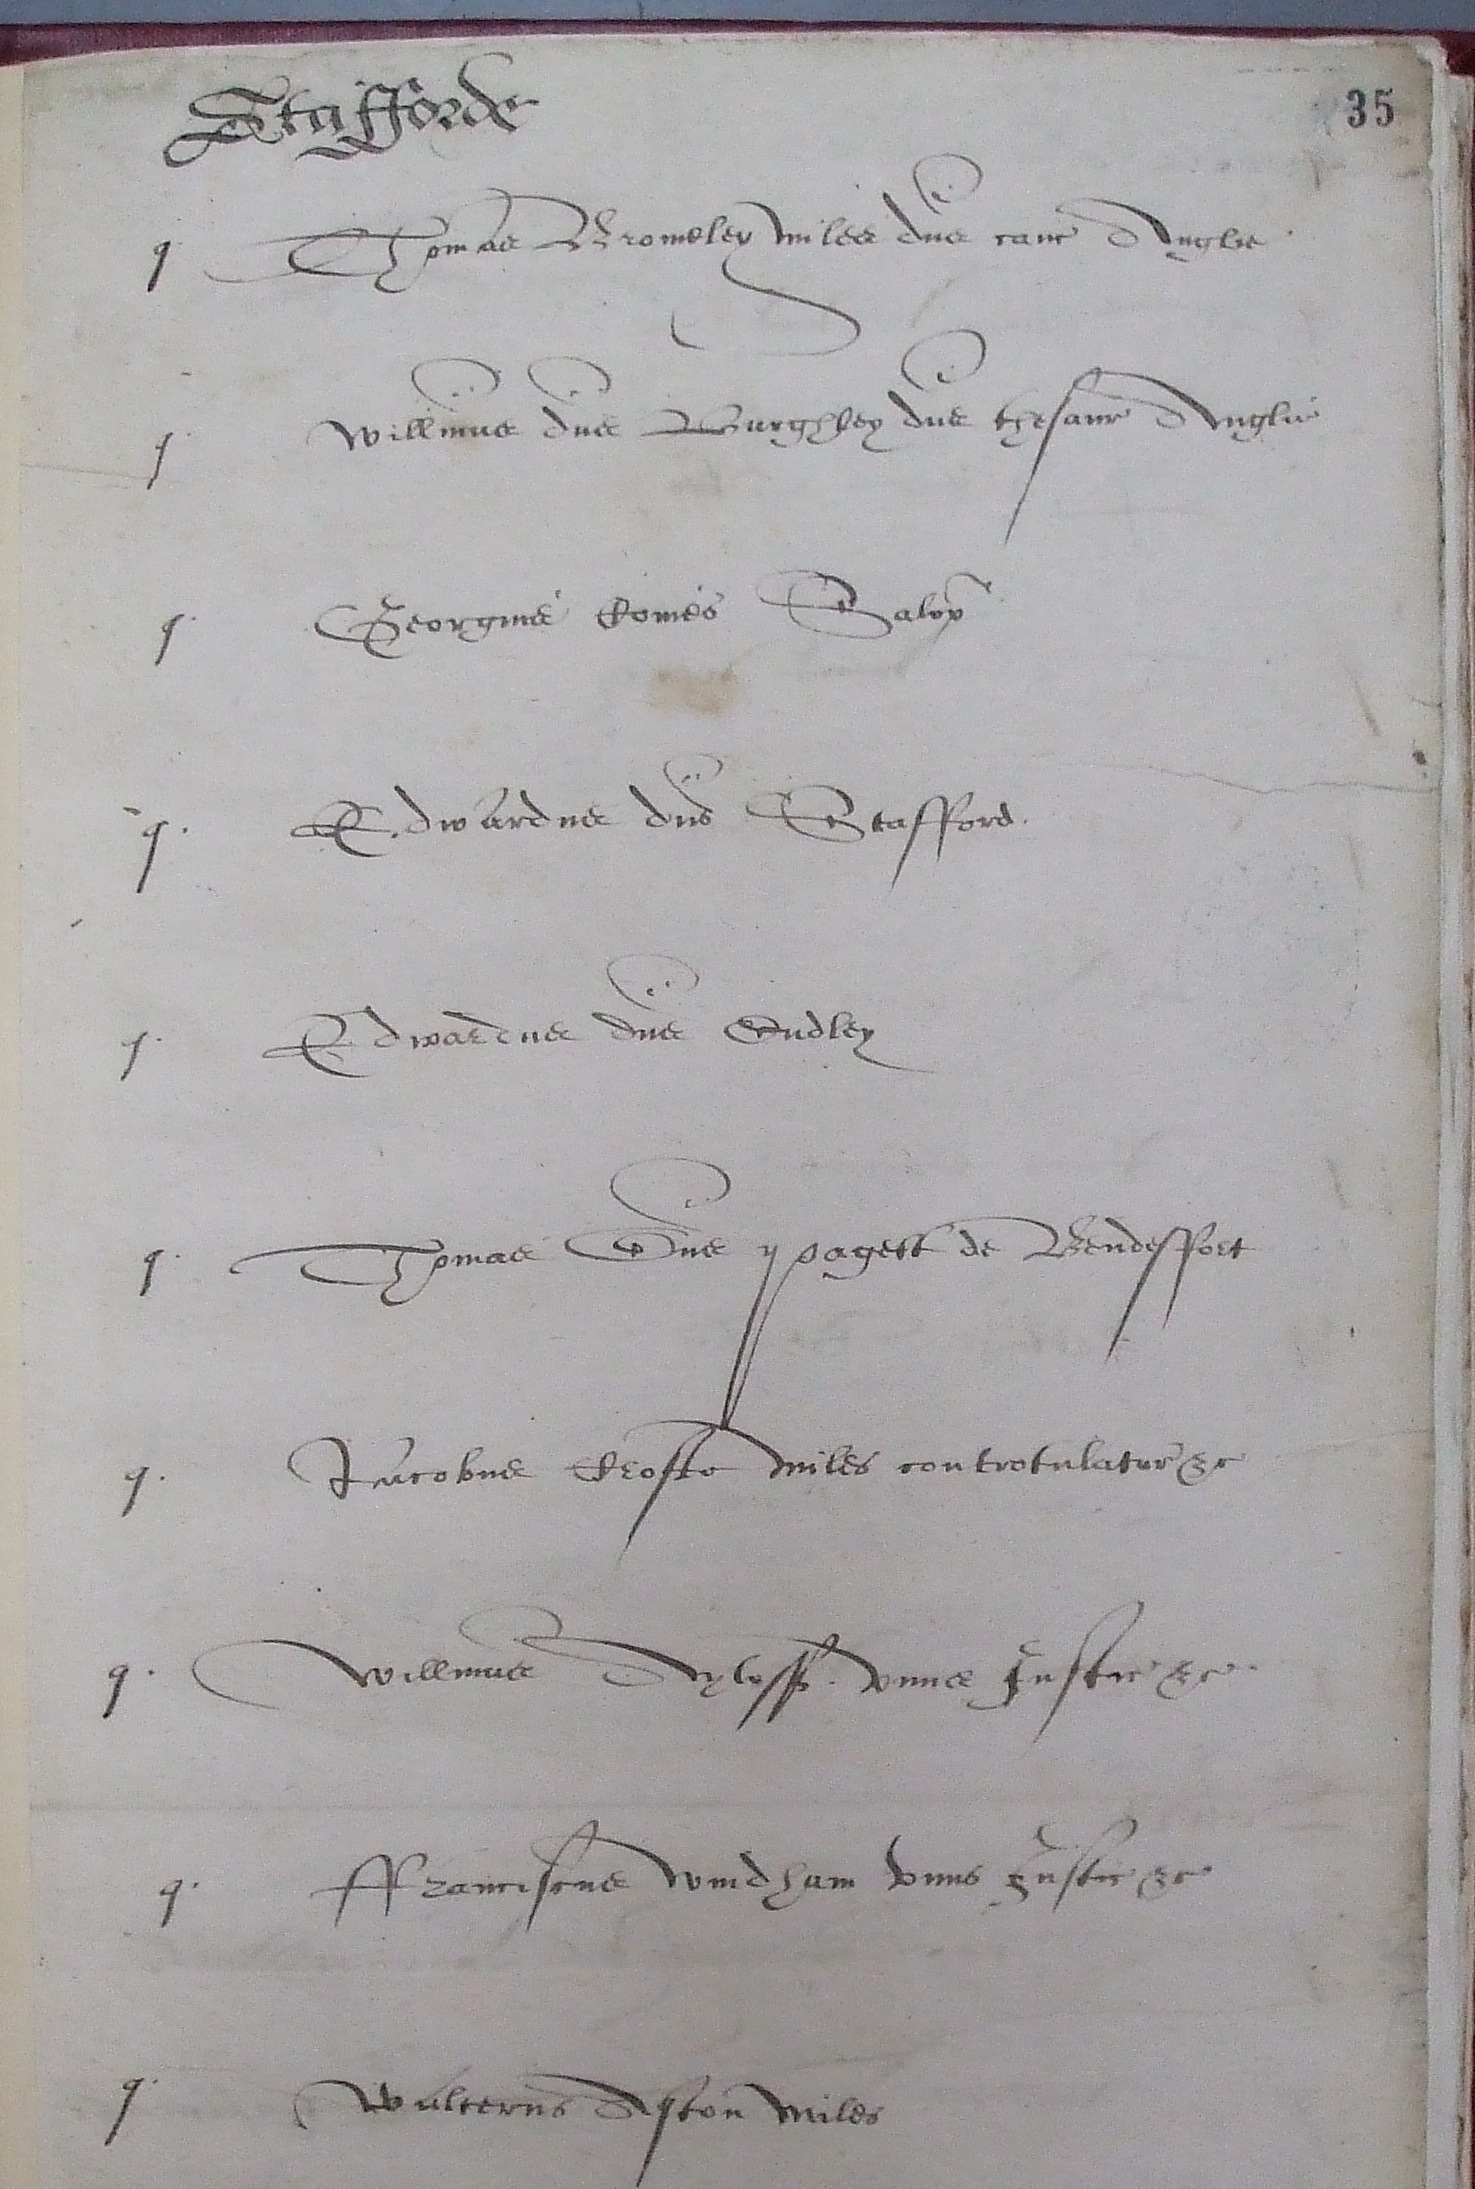 Stafforde
35
q Thomas Bromley miles dns canc Anglie
q Willmus dns Burghley dns thesaur Anglie
q Georgius Comes Salop
q. Edwardus dns Stafford.
q. Edwardus dns Dudley
q. Thomas Dns pagett de Beudesfort
q. Jacobus Crofte miles controtulator &c
q. Willmus Ayloff. unus Justic &c
q. ffranciscus Windham unus Justic &c
q. Walterus Aston miles